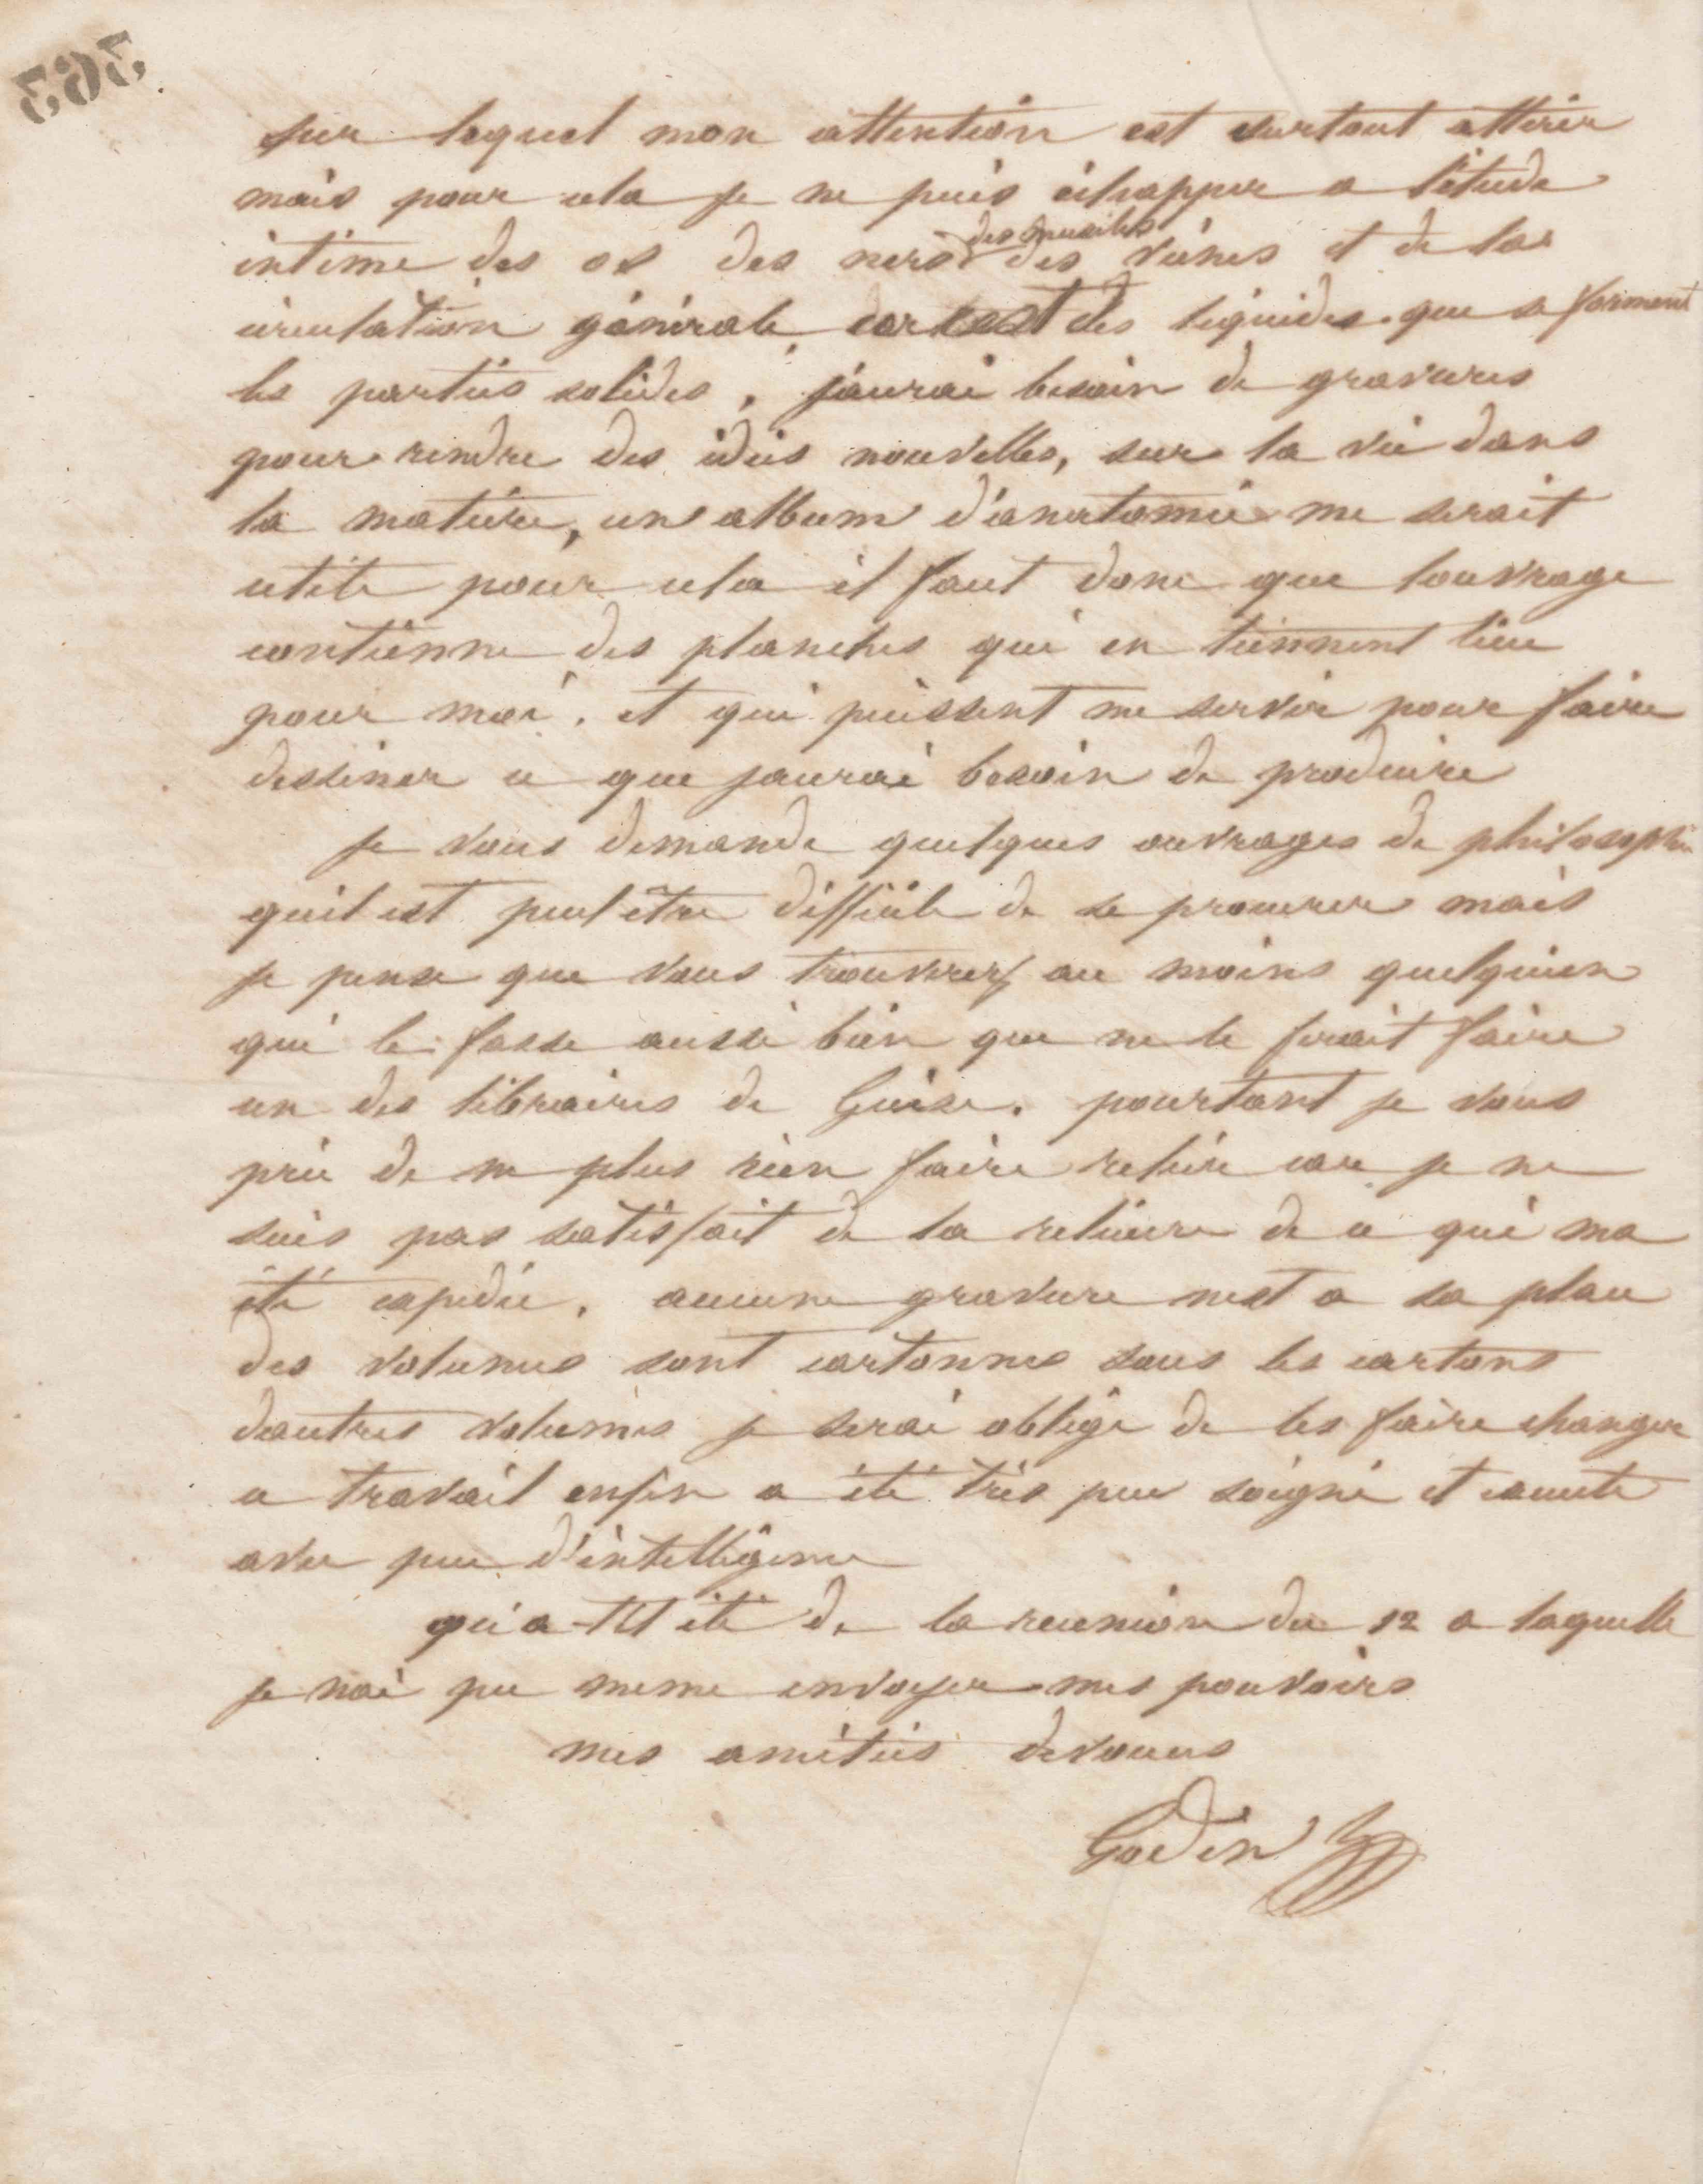 363
sur lequel mon attention est surtout attirée
mais pour cela je ne puis échapper a l'étude
intime des os des nerfs des muscles des veines et de la
circulation générale car c'est des liquides que se forment
les parties solides, j'aurai besoin de gravures
pour rendre des idées nouvelles, sur la vie dans
la matière, un album d'anatomie me serait
utile pour cela il faut donc que louvrage
contienne des planches qui en tiennent lieu
pour moi. et qui puissent me servir pour faire
dessiner ce que jaurai besoin de produire
je vous demande quelques ouvrages de philosophie
quil est peut être difficile de se procurer mais
je pense que vous trouverez au moins quelquun
qui le fasse aussi bien que ne le ferait faire
un des libraires de Guise. pourtant je vous
prie de ne plus rien faire relier car je ne
suis pas satisfait de la reliure de ce qui ma
été expédié. aucune gravure nest a sa place
des volumes sont cartonnés sous les cartons
dautres volumes je serai obligé de les faire changer
ce travail enfin a été très peu soigné et exécuté
avec peu d'intelligence
qu'a-t-il été de la reunion du 12 a laquelle
je nai pu meme envoyer mes pouvoirs
mes amitiés devouées
Godin